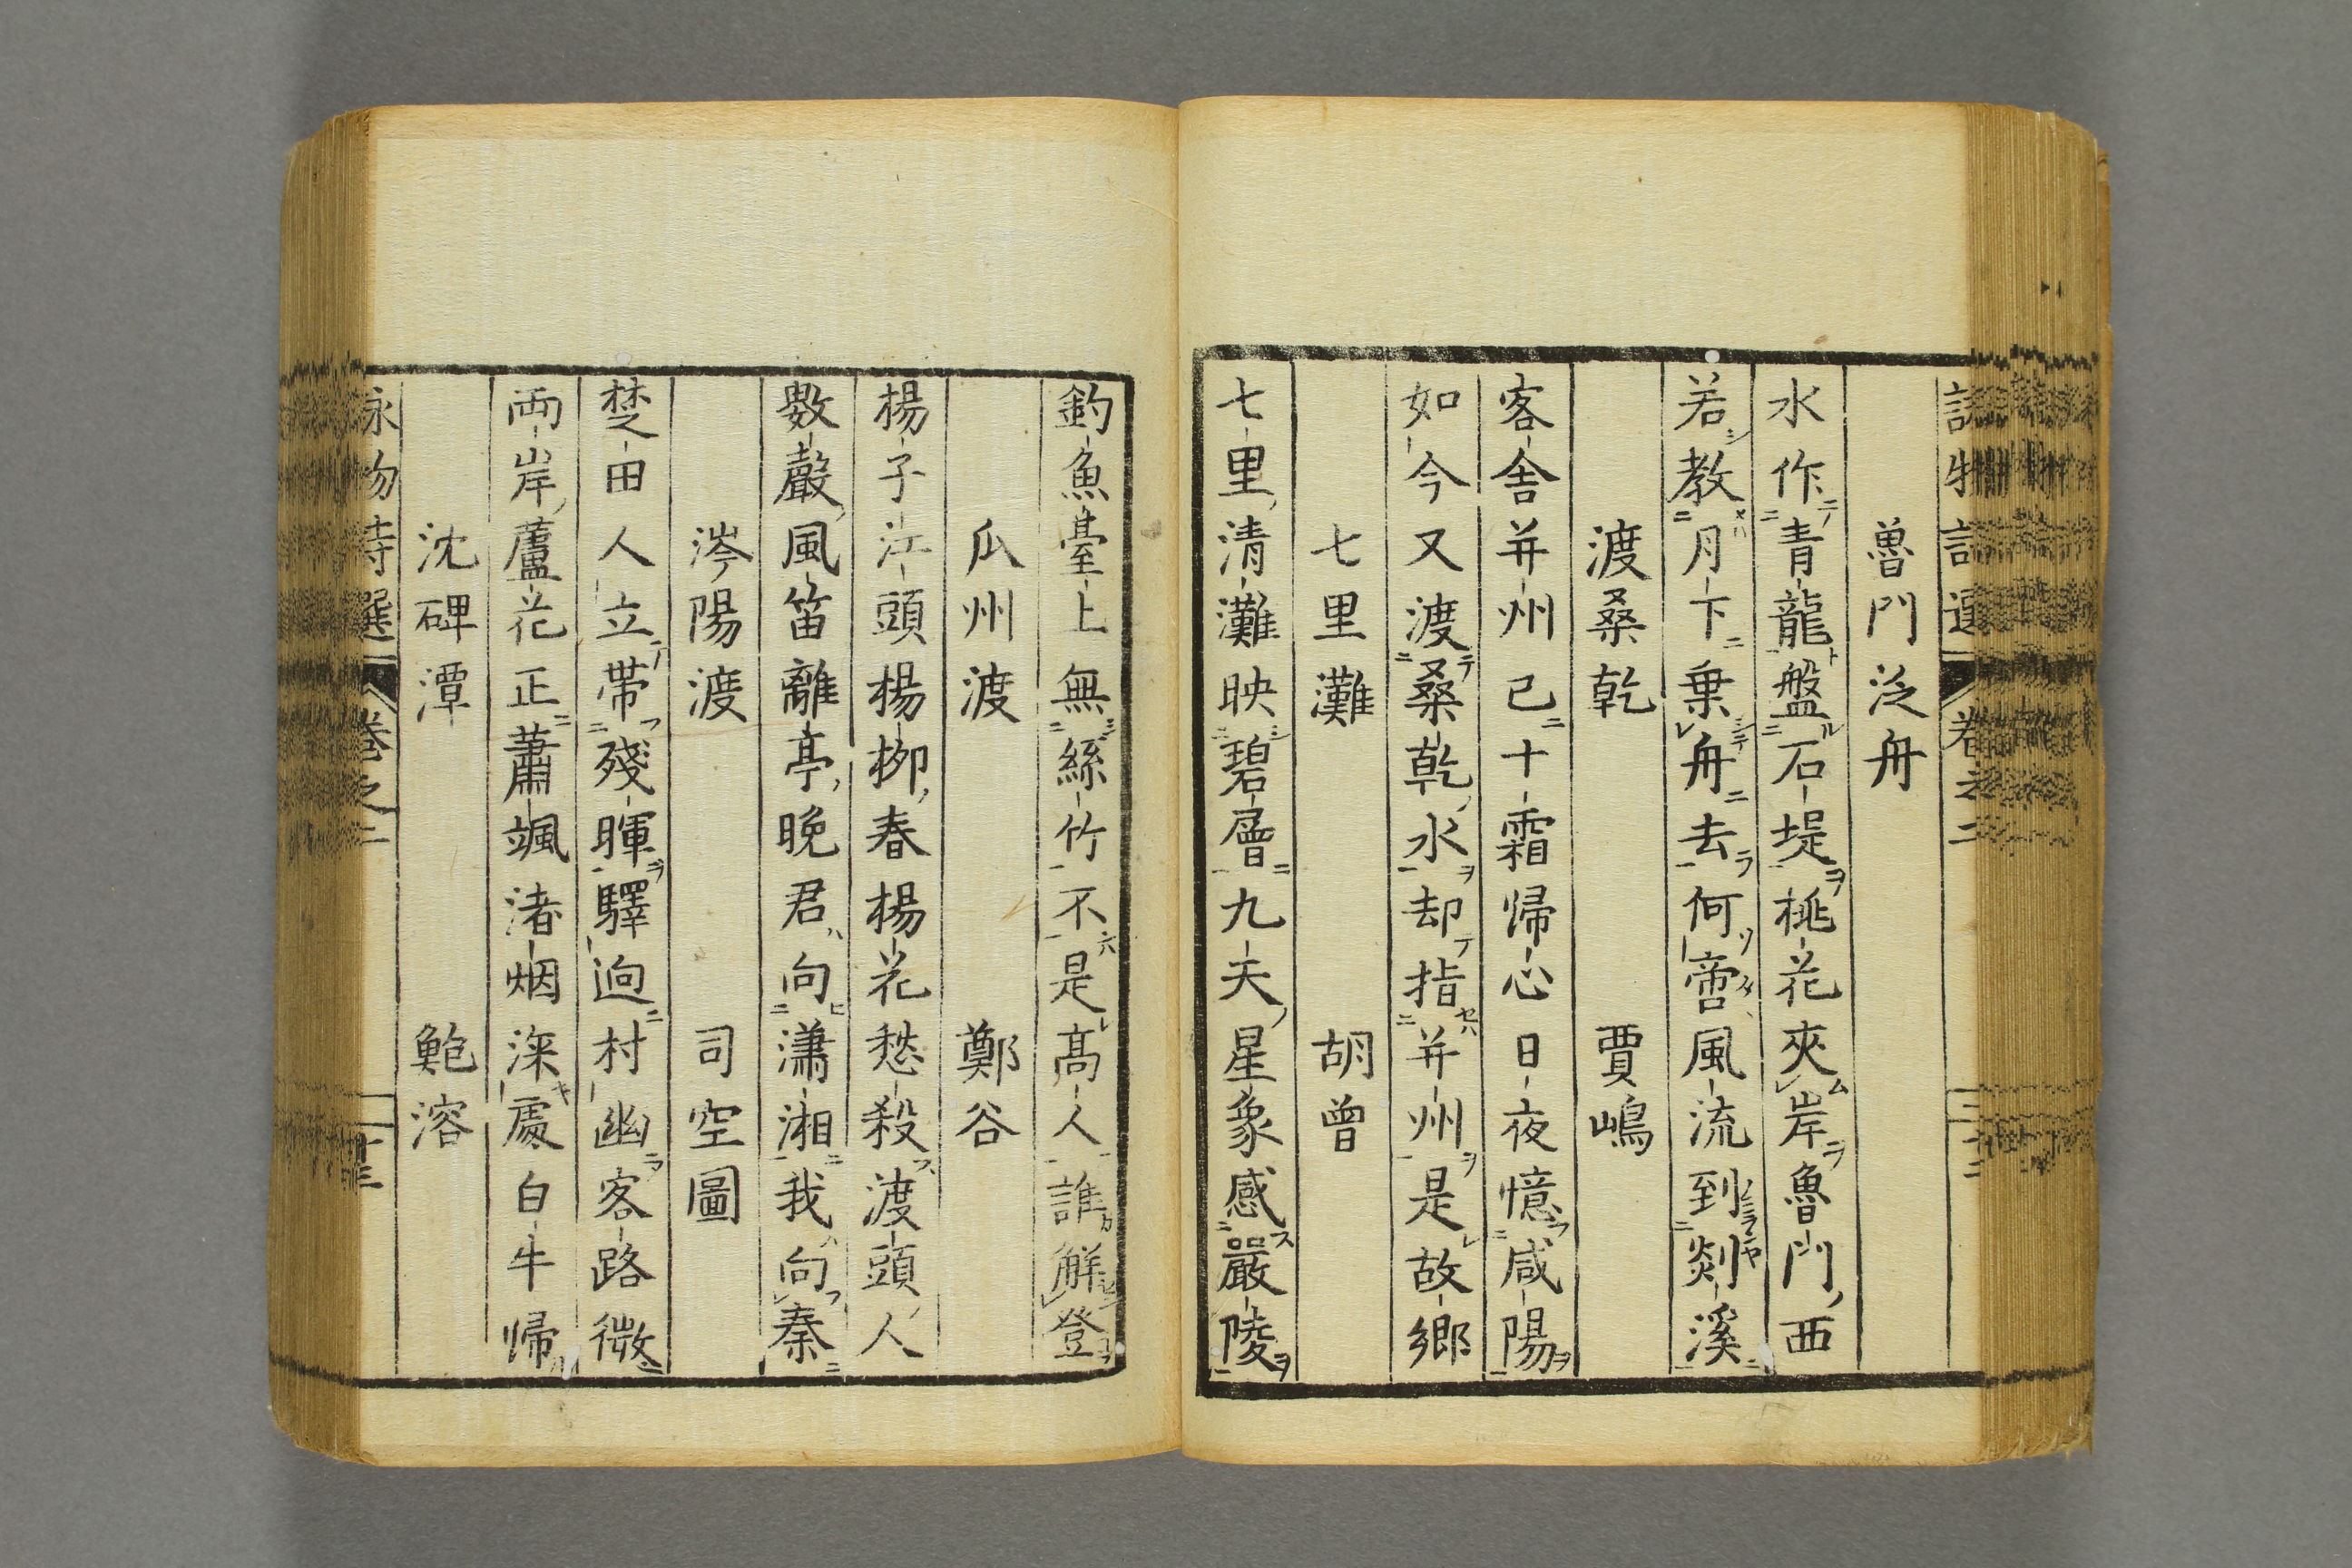 魯門泛舟
水作青龍盤石堤桃花夾岸魯門西
若教月下乗舟去何啻風流到剡溪
渡桒乾　賈嶋
客舎并州已十霜帰心日夜憶咸陽
如今又渡桒乾水却指并州是故郷
七里灘　胡曾
七里清灘映碧層九天星象感嚴陵
釣魚臺上無絲竹不是髙人誰解登
瓜州渡　鄭谷
楊子江頭楊柳春楊花愁殺渡頭人
數聲風笛離亭晩君向瀟湘我向秦
涔陽渡　司空圖
楚田人立帯殘暉驛逈村幽客路微
両岸蘆花正蕭颯渚烟深處白牛帰
沈碑潭　鮑溶
詠物詩選　巻之二